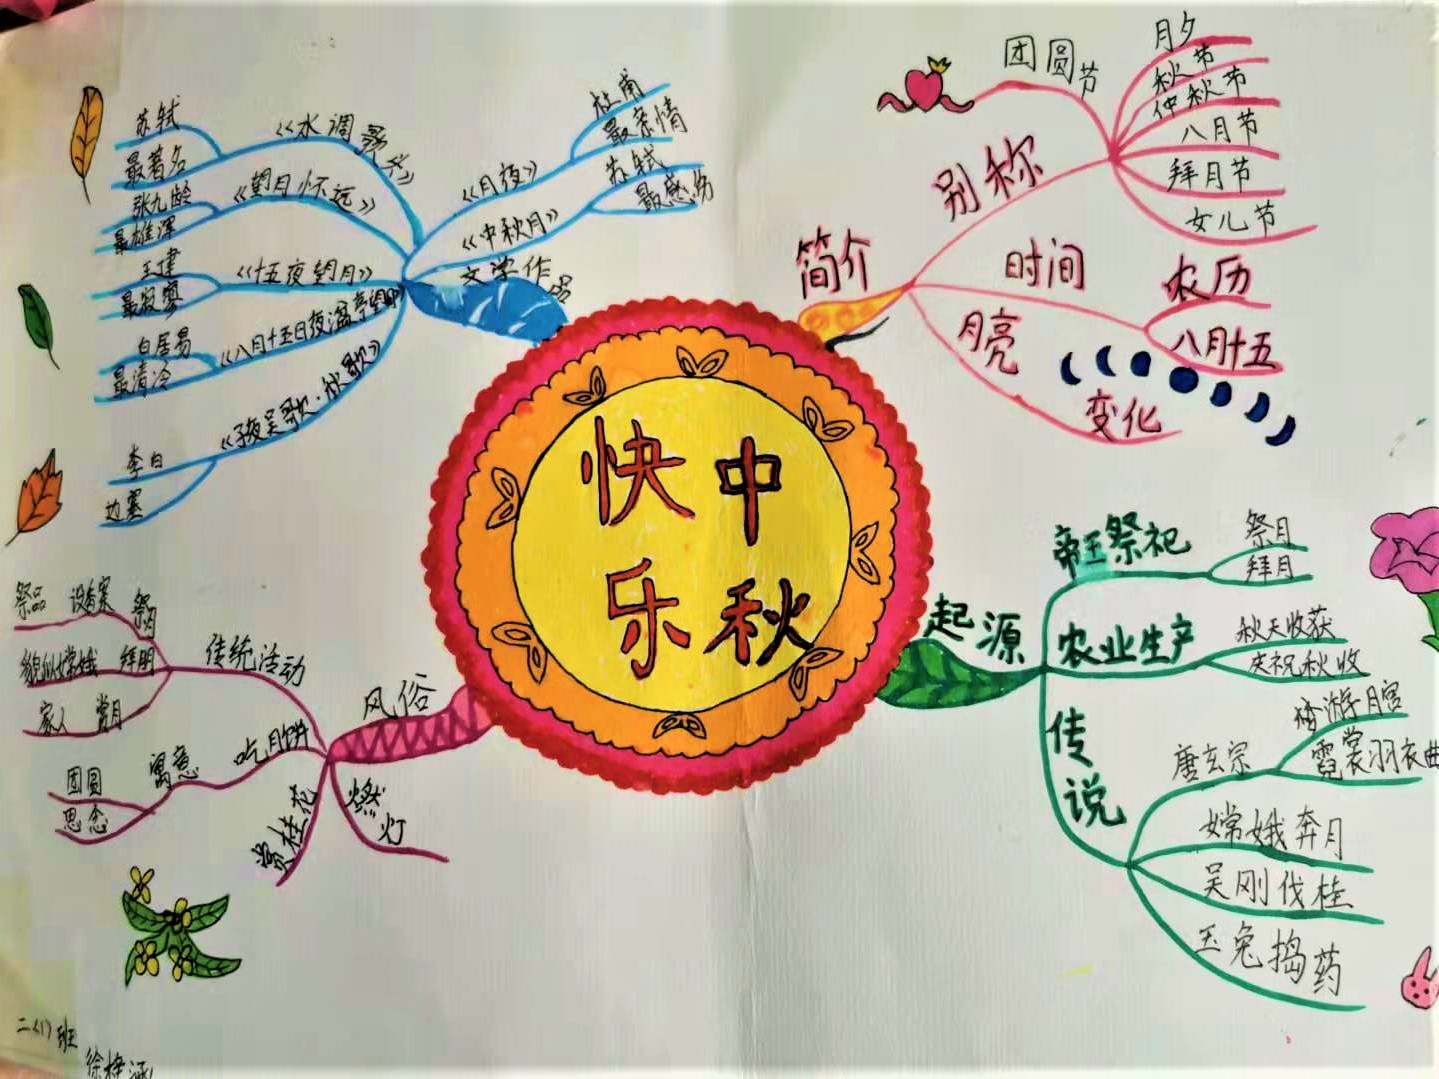 快中
乐秋
简介
别称
团圆节
月夕
秋节
仲秋节
八月节
拜月节
女儿节
时间
农历
八月十五
月亮
变化
起源
帝王祭祀
祭月
拜月
农业生产
秋天收获
庆祝秋收
传说
唐玄宗
梦游月宫
霓裳羽衣曲
嫦娥奔月
吴刚伐桂
玉兔捣药
文学作品
《水调歌头》
苏轼
最著名
《望月怀远》
张九龄
最雄浑
《十五夜望月》
王建
最寂寥
《八月十五日夜湓亭望月
白居易
最清冷
《子夜吴歌·秋歌》
李白
边塞
《月夜》
杜甫
最亲情
《中秋月》
苏轼
最感伤
风俗
传统活动
祭月
设香案
祭品
拜月
貌似嫦娥
赏月
家人
吃月饼
寓意
团圆
思念
赏桂花
燃灯
二(1)班